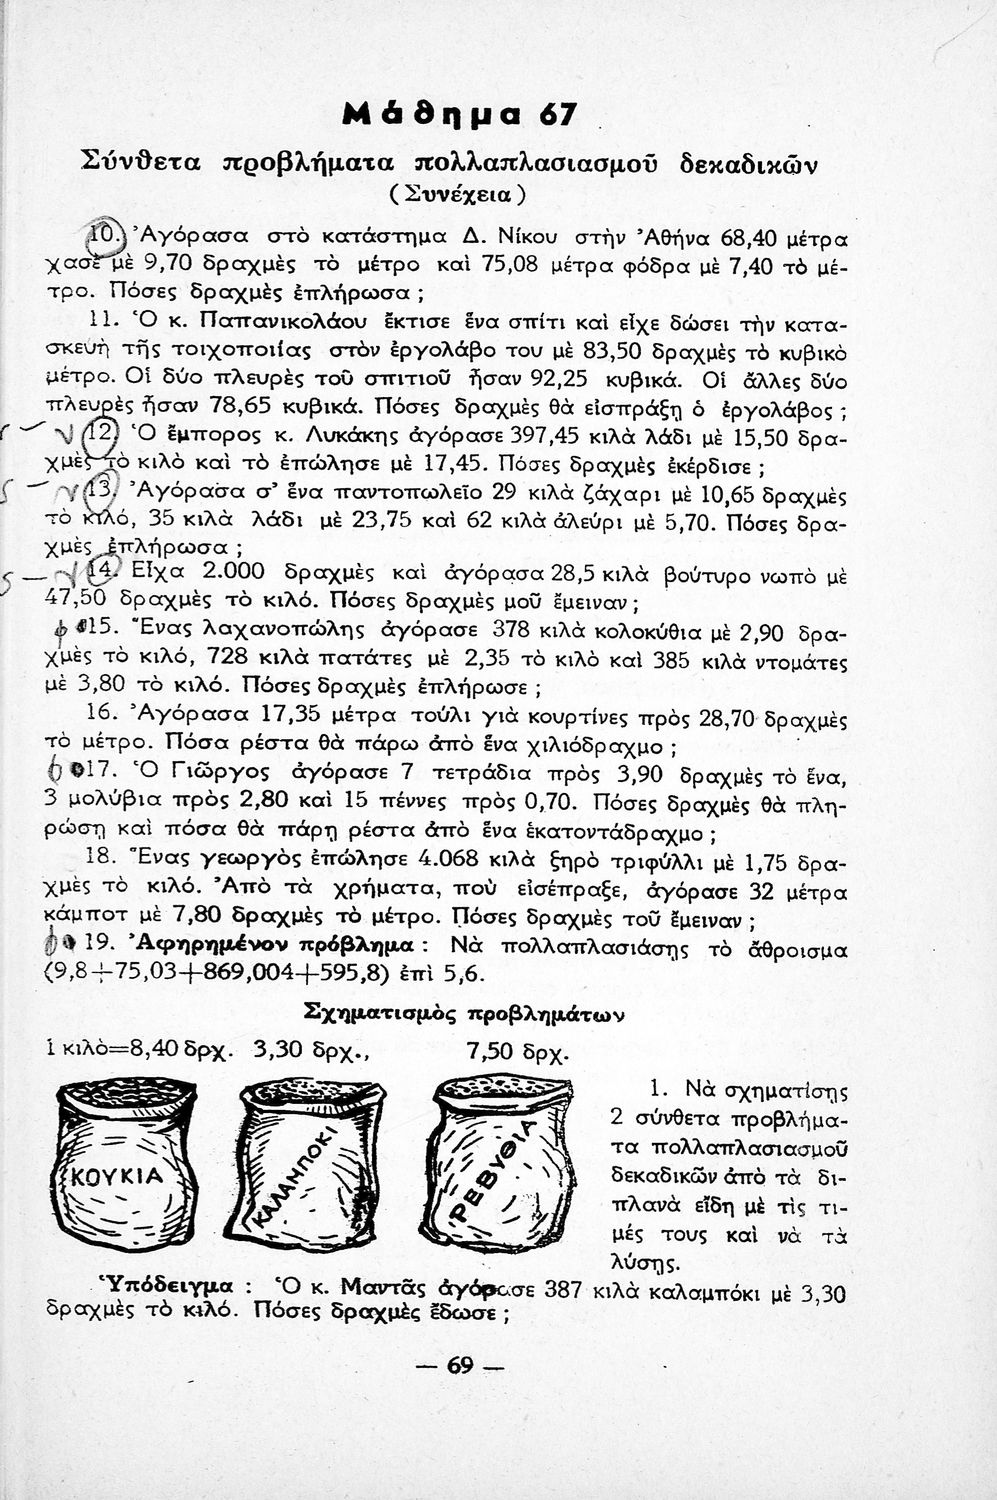 Μάθημα 67
Σύνθετα προβλήματα πολλαπλασιασμοῦ δεκαδικῶν
(Συνέχεια)
10. Ἀγόρασα στὸ κατάστημα Δ. Νίκου στὴν Ἀθήνα 68,40 μέτρα
χασὲ μὲ 9,70 δραχμὲς τὸ μέτρο καὶ 75,08 μέτρα φόδρα μὲ 7,40 τὸ μέ-
τρο. Πόσες δραχμὲς ἐπλήρωσα ;
11. Ὁ κ. Παπανικολάου ἔκτισε ἕνα σπίτι καὶ εἶχε δώσει τὴν κατα-
σκευὴ τῆς τοιχοποιΐας στὸν ἐργολάβο του μὲ 83,50 δραχμὲς τὸ κυβικὸ
μέτρο. Οἱ δύο πλευρὲς τοῦ σπιτιοῦ ἦσαν 92,25 κυβικά. Οἱ ἄλλες δύο
πλευρὲς ἦσαν 78,65 κυβικά. Πόσες δραχμὲς θὰ εἰσπράξη ὁ ἐργολάβος ;
12. Ὁ ἔμπορος κ. Λυκάκης ἀγόρασε 397,45 κιλὰ λάδι μὲ 15,50 δρα-
χμὲς τὸ κιλὸ καὶ τὸ ἐπώλησε μὲ 17,45. Πόσες δραχμὲς ἐκέρδισε ;
13. Ἀγόρασα σ' ἕνα παντοπωλεῖο 29 κιλὰ ζάχαρι μὲ 10,65 δραχμὲς
τὸ κιλό, 35 κιλὰ λάδι μὲ 23,75 καὶ 62 κιλὰ ἀλεύρι μὲ 5,70. Πόσες δρα-
χμὲς ἐπλήρωσα ;
14. Εἶχα 2.000 δραχμὲς καὶ ἀγόρασα 28,5 κιλὰ βούτυρο νωπὸ μὲ
47,50 δραχμὲς τὸ κιλό. Πόσες δραχμὲς μοῦ ἔμειναν ;
15. Ἕνας λαχανοπώλης ἀγόρασε 378 κιλὰ κολοκύθια μὲ 2,90 δρα-
χμὲς τὸ κιλό, 728 κιλὰ πατάτες μὲ 2,35 τὸ κιλὸ καὶ 385 κιλὰ ντομάτες
μὲ 3,80 τὸ κιλό. Πόσες δραχμὲς ἐπλήρωσε ;
16. Ἀγόρασα 17,35 μέτρα τούλι γιὰ κουρτίνες πρὸς 28,70 δραχμὲς
τὸ μέτρο. Πόσα ρέστα θὰ πάρω ἀπὸ ἕνα χιλιόδραχμο ;
17. Ὁ Γιῶργος ἀγόρασε 7 τετράδια πρὸς 3,90 δραχμὲς τὸ ἕνα,
3 μολύβια πρὸς 2,80 καὶ 15 πέννες πρὸς 0,70. Πόσες δραχμὲς θὰ πλη-
ρώση καὶ πόσα θὰ πάρῃ ρέστα ἀπὸ ἕνα ἑκατοντάδραχμο ;
18. Ἕνας γεωργὸς ἐπώλησε 4.068 κιλὰ ξηρὸ τριφύλλι μὲ 1,75 δρα-
χμὲς τὸ κιλό. Ἀπὸ τὰ χρήματα, ποὺ εἰσέπραξε, ἀγόρασε 32 μέτρα
κάμποτ μὲ 7,80 δραχμὲς τὸ μέτρο. Πόσες δραχμὲς τοῦ ἔμειναν ;
19. Ἀφηρημένον πρόβλημα : Νὰ πολλαπλασιάσῃς τὸ ἄθροισμα
(9,8+75,03+869,004+595,8) ἐπὶ 5,6.
Σχηματισμὸς προβλημάτων
1 κιλὸ=8,40 δρχ. 3,30 δρχ., 7,50 δρχ.
ΚΟΥΚΙΑ
ΚΑΛΑΜΠΟΚΙ
ΡΕΒΥΘΙΑ
1. Νὰ σχηματίσῃς
2 σύνθετα προβλήμα-
τα πολλαπλασιασμοῦ
δεκαδικῶν ἀπὸ τὰ δι-
πλανὰ εἴδη μὲ τὶς τι-
μές τους καὶ νὰ τὰ
λύσῃς.
Ὑπόδειγμα : Ὁ κ. Μαντᾶς ἀγόρασε 387 κιλὰ καλαμπόκι μὲ 3,30
δραχμὲς τὸ κιλό. Πόσες δραχμὲς ἔδωσε ;
— 69 —